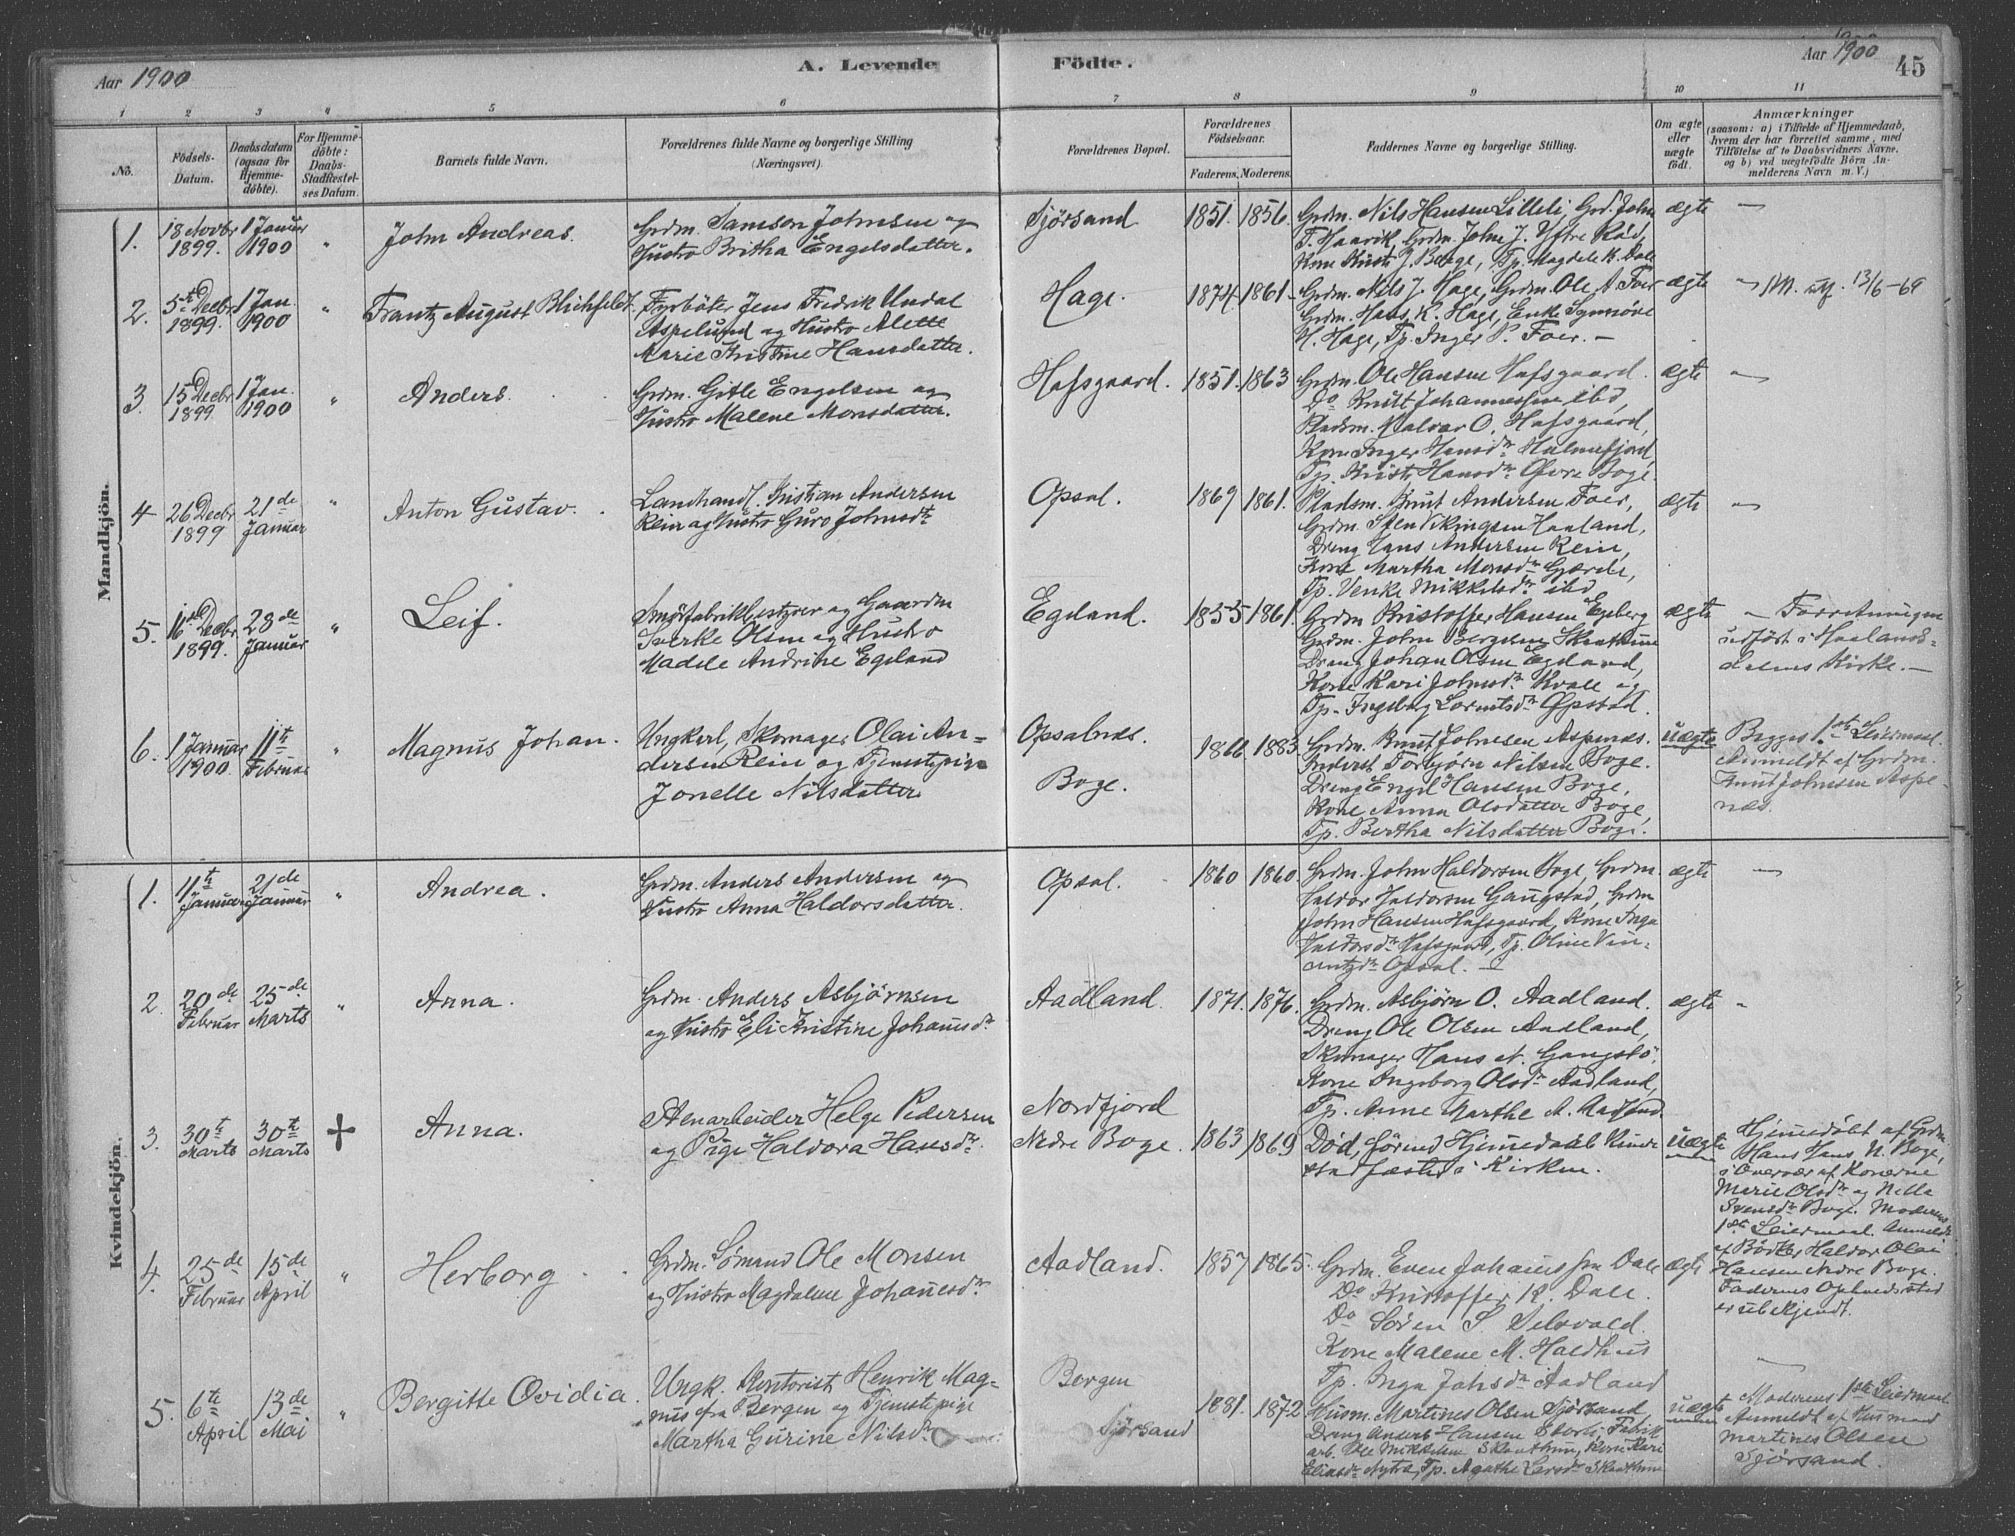 Aar 1900
A. Levende Födte.
Aar 1900
45
1 2 3 4 5 6 7 8 9 10 11
No.
Födsels-
Datum.
Daabsdatum
(ogsaa for
Hjemme-
döbte).
For Hjemme-
döbte:
Daabs-
Stadfæstel-
ses Datum.
Barnets fulde Navn.
Forældrenes fulde Navne og borgerlige Stilling
(Næringsvei).
Forældrenes Bopæl.
Forældrenes
Födselsaar.
Faderens. Moderens.
Faddernes Navne og borgerlige Stilling.
Om ægte
eller
uægte
födt.
Anmærkninger
(saasom: a) i Tilfælde af Hjemmedaab,
hvem der har forrettet samme, med
Tilföielse af to Daabsvidners Navne,
og b) ved uægtefödte Börn An-
melderens Navn m. V.)
Mandkjön.
1.
18 Novbr
1899.
1 Januar
1900
"
John Andreas.
Grdm. Samson Johnsen og
Hustro Britha Engelsdatter.
Sjørsand
1851. 1856.
Grdm. Nils Hansen Lilleli, Grd. John
T. Haavik, Grdm. John J. Yttre Rød,
Kone Kristi J. Berge, Tp. Magdele K. Dale
ægte
—
2.
5te Decbr
1899.
1 Jan.
1900
"
Frantz August Blichfeldt.
Fyrbøter Jens Fredrik Undal
Aspelund og Hustro Alette
Marie Kristine Hansdatter.
Hage.
1874. 1861.
Grdm. Nils J. Hage, Grdm. Ole A. Foer
Grdm. Hans K. Hage, Enke Synnøve
H. Hage, Tp. Inger P. Foer. —
ægte
13/6-69
3.
15 Decbr
1899
1 Jan.
1900
"
Anders.
Grdm. Gitle Engelsen og
Hustro Malene Monsdatter.
Hafsgaard.
1851. 1863
Grdm. Ole Hansen Hafsgaard.
Do Knut Johannessen, ibd,
Pladsm. Halvor O. Hafsgaard,
Kone Inger Hansdr Holmefjord,
Tp. Kristi Hansdr Øvre Boge.
ægte
—
4
26 Decbr
1899
21de
Januar
"
Anton Gustav.
Landhandl. Kristian Andersen
Rein og Hustro Guro Johnsdtr
Opsal.
1869 1861.
Pladsm. Knut Andersen Foer,
Grdm. Sten Vikingsen Haaland,
Dreng Hans Andersen Rein,
Kone Martha Monsdr Gjerde,
Tp. Venke Mikkelsdr ibd.
ægte
—
5.
16de Decbr
1899.
28de
Januar
"
Leif.
Smørfabrikbestyrer og Gaardm
Sverke Olsen og Hustro
Madele Andrine Egeland
Egeland.
1855 1861.
Grdm Kristoffer Hansen Eneberg
Grdm. John Bergesen Skaathun
Dreng Johan Olsen Egeland,
Kone Kari Johnsdr. Kvale og
Tp. Ingeborg Lorentsdr Opstad.
ægte
— Forretningen
udført i Haalands-
dalens Kirke. —
6.
1 Januar
1900.
11te
Februar
"
Magnus Johan.
Ungkarl, Skomager Olai An-
dersen Rein og Tjenestepige
Jonelle Nilsdatter
Opsalnæs.
Boge.
1866 1883
Grdm. Knut Johnsen Aspenæs.
Inderst Torbjørn Nilsen Boge.
Dreng Engel Hansen Boge,
Kone Anna Olsdatter Boge,
Tp. Bertha Nilsdatter Boge.
uægte
Begges 1ste Leiermaal.
Anmeldt af Grdm.
Knut Johnsen Aspe-
næs.
Kvindekjön.
1.
11te
Januar
21de
Januar
"
Andrea.
Grdm. Anders Andersen og
Hustro Anna Haldorsdatter.
Opsal.
1860 1860
Grdm. John Haldorsen Boge, Grdm
Haldor Haldorsen Gangstad, Grdm
John Hansen Hafsgaard, Kone Inga
Haldorsdr Hafsgaard, Tp. Oline Vin-
centzdr Opsal. —
ægte
—
2.
20de
Februar
25de
Marts
"
Anna.
Grdm. Anders Asbjørnsen
og Hustro Eli Kristine Johannesdr
Aadland.
1871. 1876.
Grdm. Asbjørn O. Aadland.
Dreng Ole Olsen Aadland,
Skomager Hans N. Gangstø,
Kone Ingeborg Olsdr Aadland,
Tp. Anne Marthe A. Aadland
ægte
"
3.
30te
Marts
30te
Marts
+
Anna.
Stenarbeider Helge Pedersen
og Pige Haldora Hansdr.
Nordfjord
Nedre Boge.
1863 1869
Død, førend Hjemmedaab kunde
stadfæstes i Kirken.
uægte
Hjemmedøbt af Grdm.
Hans Hans N. Boge,
i Overvær af Konerne
Marie Olsdr og Nilla
Svensdr Boge. Moderens
1ste Leiermaal. Anmeldt
af Bødker Haldor Olai
Hansen Nedre Boge.
Faderens Opholdssted
er ubekjendt.
4.
25de
Februar
15de
April
"
Herborg
Grdm. Sømand Ole Monsen
og Hustro Magdalene Johannesdr
Aadland.
1857 1865.
Grdm. Even Johannessen Dale
Do Kristoffer K. Dale.
Do Søren S. Selsvold.
Kone Malene M. Haldhus
Tp. Inga Johsdr Aadland
ægte
—
5.
6te
April
13de
Mai
"
Bergitte Ovidia.
Ungk. Kontorist Henrik Mag-
nus fra Bergen og Tjenestepige
Martha Gurine Nilsdr
Bergen
Sjørsand
1881. 1872
Husm. Martines Olsen Sjørsand
Dreng Anders Hansen Eberli, Fabrik
arb. Ole Mikkelsen Skaathun, Kone Kari
Eliasdr Nytræ, Tp. Agathe Larsdr Skaathun
uægte
Moderens 1ste Leiermaal
Anmeldt af Husmand
Martines Olsen
Sjørsand.